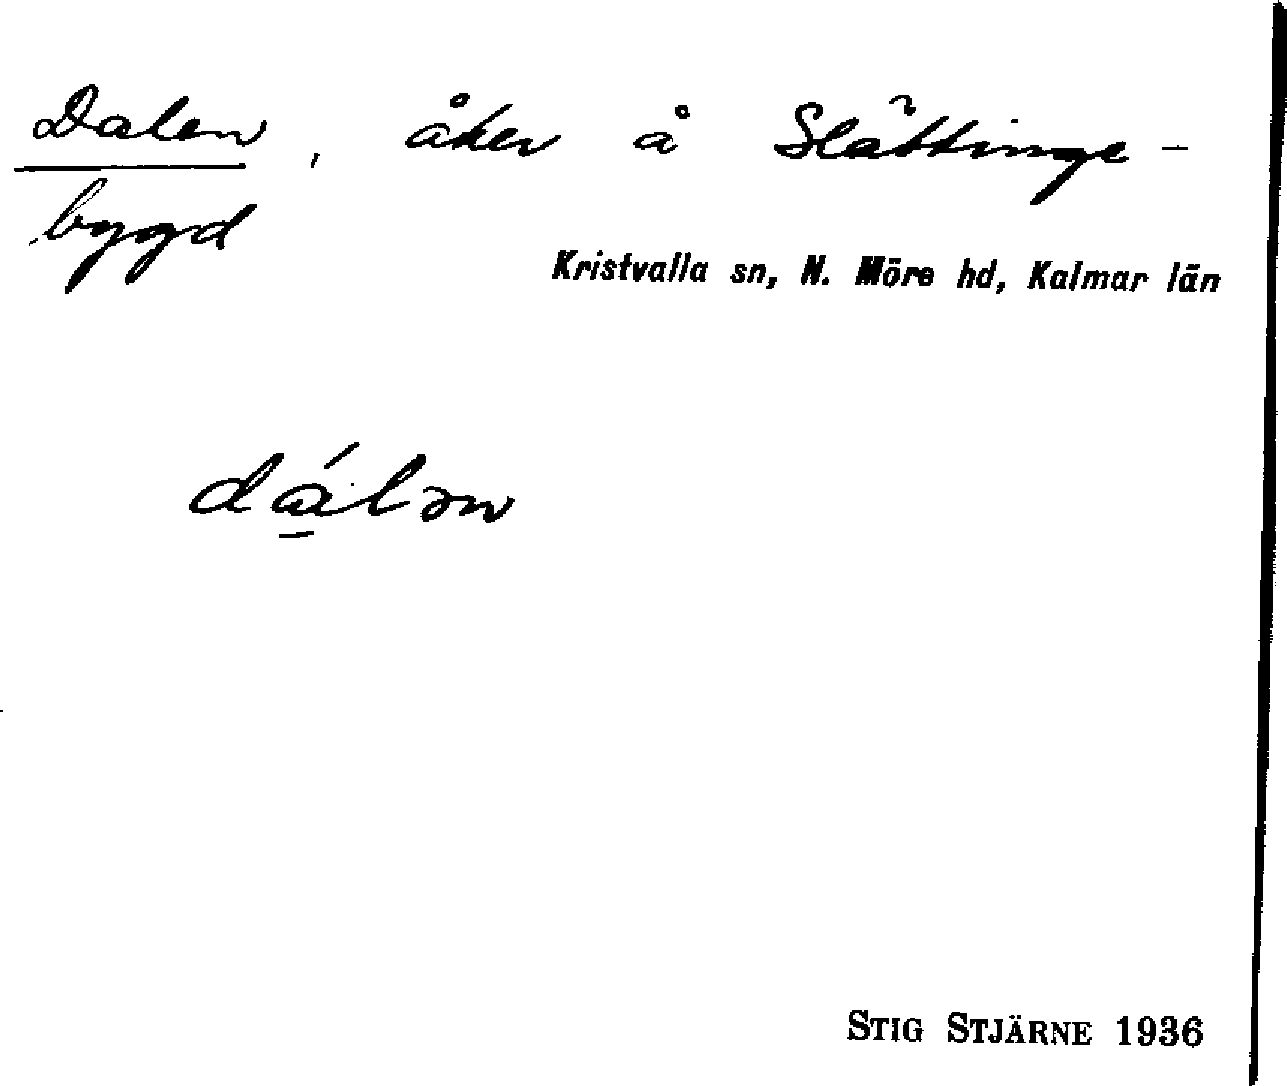 Dalen, åker å Slättinge-
bygd
Kristvalla sn, N. Möre hd, Kalmar län
dálən
STIG STJÄRNE 1936